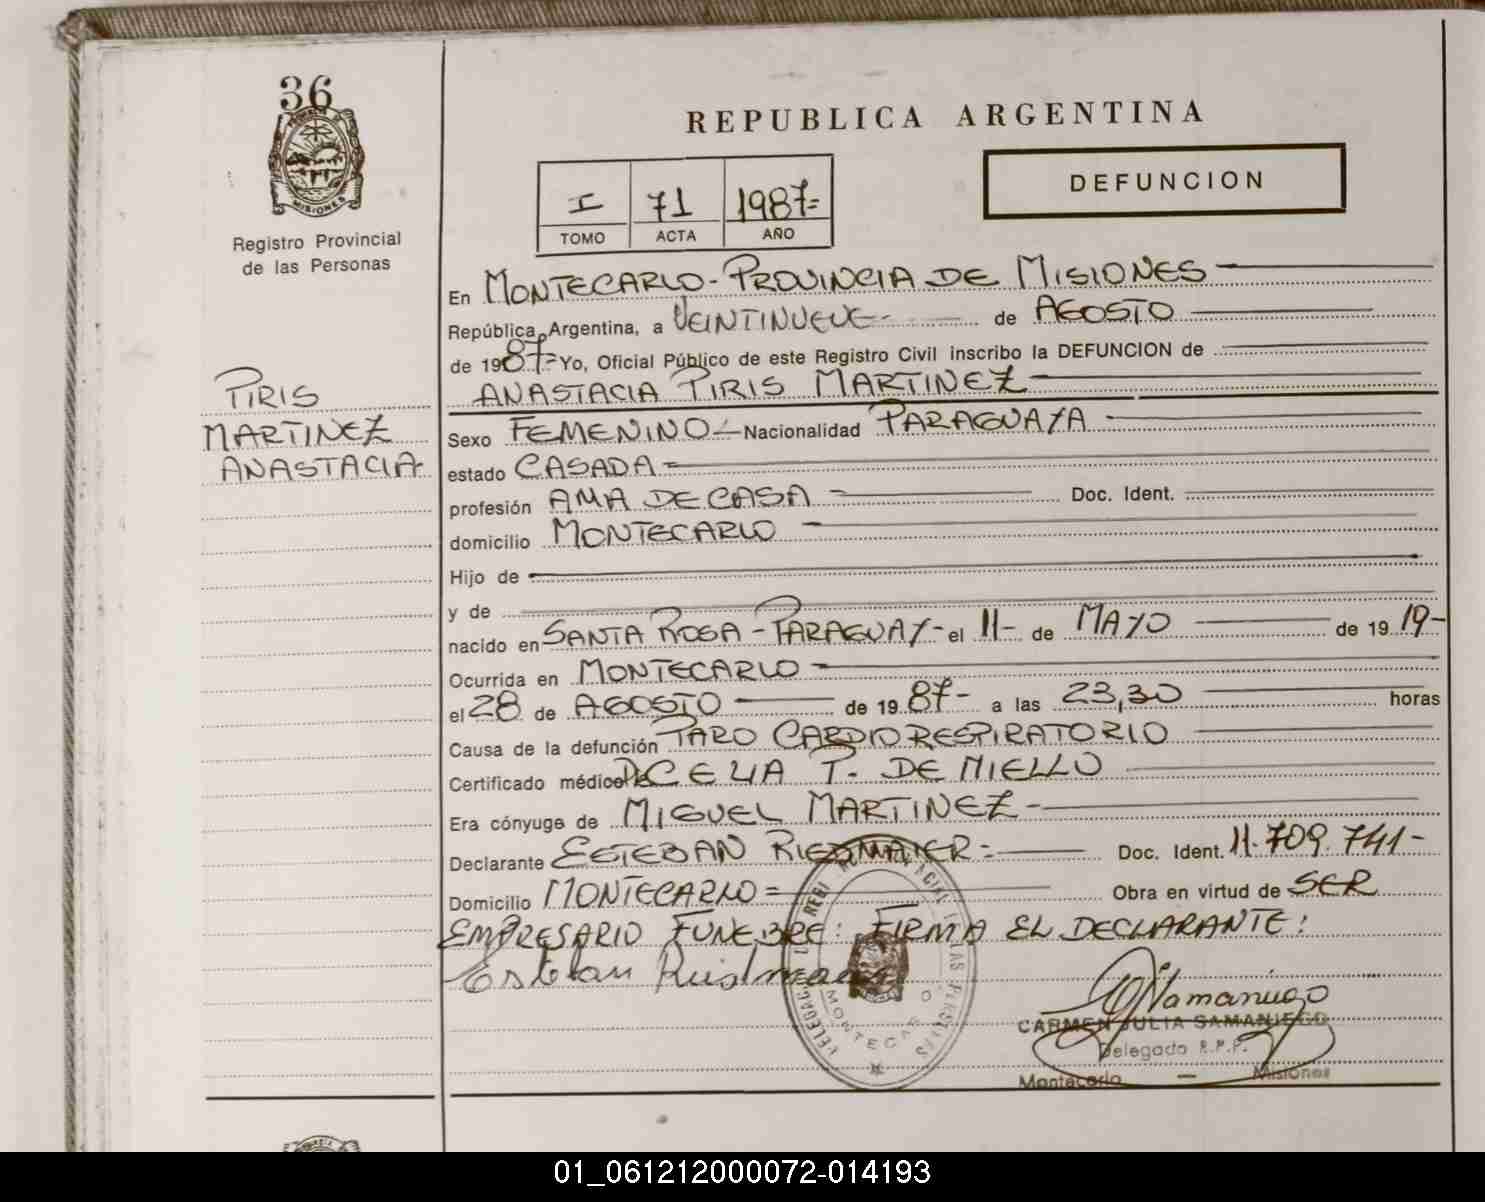 36
MISIONES
Registro Provincial
de las Personas
REPUBLICA ARGENTINA
DEFUNCION
I 71 1987=
TOMO ACTA AÑO
PIRIS
MARTINEZ
ANASTACIA
En MONTECARLO - PROVINCIA DE MISIONES
República Argentina, a VEINTINUEVE de AGOSTO
de 1987= Yo, Oficial Público de este Registro Civil inscribo la DEFUNCION de
ANASTACIA PIRIS MARTINEZ
Sexo FEMENINO Nacionalidad PARAGUAYA
estado CASADA
profesión AMA DE CASA Doc. Ident.
domicilio MONTECARLO
Hijo de
y de
nacido en SANTA ROSA - PARAGUAY - el 11- de MAYO de 19 19-
Ocurrida en MONTECARLO
el 28 de AGOSTO de 19 87- a las 23,30 horas
Causa de la defunción PARO CARDIO RESPIRATORIO
Certificado médico CELIA P. DE MIELLO
Era cónyuge de MIGUEL MARTINEZ
Declarante ESTEBAN RIEDMAIER = Doc. Ident. 11.709.741-
Domicilio MONTECARLO = Obra en virtud de SER
EMPRESARIO FUNEBRE: FIRMA EL DECLARANTE:
CARMEN JULIA SAMANIEGO
Delegado R.P.P.
Montecarlo - Misiones
01_061212000072-014193